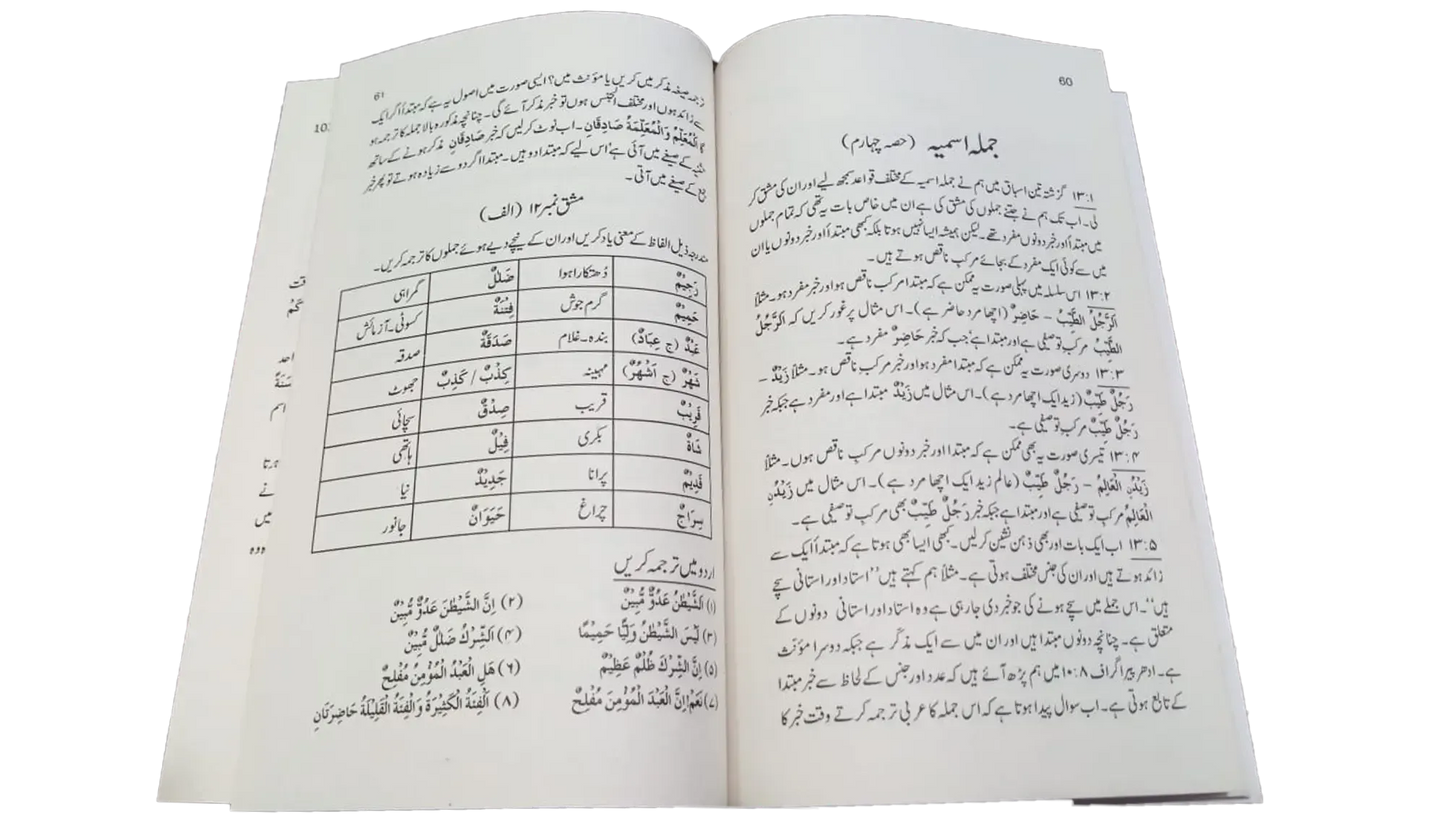 60
جملہ اسمیہ (حصہ چہارم)
۱۳:۱ گزشتہ تین اسباق میں ہم نے جملہ اسمیہ کے مختلف قواعد سمجھ لیے اور ان کی مشق کر
لی۔ اب تک ہم نے جتنے جملوں کی مشق کی ہے ان میں خاص بات یہ تھی کہ تمام جملوں
میں مبتدأ اور خبر دونوں مفرد تھے۔ لیکن ہمیشہ ایسا نہیں ہوتا بلکہ کبھی مبتدأ اور خبر دونوں یا ان
میں سے کوئی ایک مفرد کے بجائے مرکب ناقص ہوتے ہیں۔
۱۳:۲ اس سلسلہ میں پہلی صورت یہ ممکن ہے کہ مبتدا مرکب ناقص ہو اور خبر مفرد ہو۔ مثلاً
اَلرَّجُلُ الطَّيِّبُ – حَاضِرٌ (اچھا مرد حاضر ہے)۔ اس مثال پر غور کریں کہ اَلرَّجُلُ
الطَّيِّبُ مرکب توصیفی ہے اور مبتدا ہے' جب کہ خبر حَاضِرٌ مفرد ہے۔
۱۳:۳ دوسری صورت یہ ممکن ہے کہ مبتدا مفرد ہو اور خبر مرکب ناقص ہو۔ مثلاً زَيْدٌ –
رَجُلٌ طَيِّبٌ (زید ایک اچھا مرد ہے)۔ اس مثال میں زَيْدٌ مبتدا ہے اور مفرد ہے جبکہ خبر
رَجُلٌ طَيِّبٌ مرکب توصیفی ہے۔
۱۳:۴ تیسری صورت یہ بھی ممکن ہے کہ مبتدا اور خبر دونوں مرکب ناقص ہوں۔ مثلاً
زَيْدُنِ الْعَالِمُ – رَجُلٌ طَيِّبٌ (عالم زید ایک اچھا مرد ہے)۔ اس مثال میں زَيْدُنِ
الْعَالِمُ مرکب توصیفی ہے اور مبتدا ہے جبکہ خبر رَجُلٌ طَيِّبٌ بھی مرکب توصیفی ہے۔
۱۳:۵ اب ایک بات اور بھی ذہن نشین کر لیں۔ کبھی ایسا بھی ہوتا ہے کہ مبتدأ ایک سے
زائد ہوتے ہیں اور ان کی جنس مختلف ہوتی ہے۔ مثلاً ہم کہتے ہیں ''استاد اور استانی سچے
ہیں''۔ اس جملے میں سچے ہونے کی جو خبر دی جارہی ہے وہ استاد اور استانی دونوں کے
متعلق ہے۔ چنانچہ دونوں مبتدا ہیں اور ان میں سے ایک مذکّر ہے جبکہ دوسرا مؤنّث
ہے۔ ادھر پیراگراف ۱۰:۸ میں ہم پڑھ آئے ہیں کہ عدد اور جنس کے لحاظ سے خبر مبتدا
کے تابع ہوتی ہے۔ اب سوال پیدا ہوتا ہے کہ اس جملہ کا عربی ترجمہ کرتے وقت خبر کا
61
ترجمہ صیغہ مذکر میں کریں یا مؤنث میں؟ ایسی صورت میں اصول یہ ہے کہ مبتدأ اگر ایک
سے زائد ہوں اور مختلف الجنس ہوں تو خبر مذکر آئے گی۔ چنانچہ مذکورہ بالا جملہ کا ترجمہ ہو
گا اَلْمُعَلِّمُ وَالْمُعَلِّمَةُ صَادِقَانِ۔ اب نوٹ کر لیں کہ خبر صَادِقَانِ مذکر ہونے کے ساتھ
تثنیہ کے صیغے میں آئی ہے' اس لیے کہ مبتدا دو ہیں۔ مبتدا اگر دو سے زیادہ ہوتے تو پھر خبر
جمع کے صیغے میں آتی۔
مشق نمبر ۱۲ (الف)
مندرجہ ذیل الفاظ کے معنی یاد کریں اور ان کے نیچے دیے ہوئے جملوں کا ترجمہ کریں۔
رَجِيْمٌ دُھتکارا ہوا ضَلٰلٌ گمراہی
حَمِيْمٌ گرم جوش فِتْنَةٌ کسوٹی۔ آزمائش
عَبْدٌ (ج عِبَادٌ) بندہ۔ غلام صَدَقَةٌ صدقہ
شَهْرٌ (ج اَشْهُرٌ) مہینہ كِذْبٌ / كَذِبٌ جھوٹ
قَرِيْبٌ قریب صِدْقٌ سچائی
شَاةٌ بکری فِيْلٌ ہاتھی
قَدِيْمٌ پرانا جَدِيْدٌ نیا
سِرَاجٌ چراغ حَيَوَانٌ جانور
اردو میں ترجمہ کریں
(۱) اَلشَّيْطٰنُ عَدُوٌّ مُّبِيْنٌ (۲) اِنَّ الشَّيْطٰنَ عَدُوٌّ مُّبِيْنٌ
(۳) لَيْسَ الشَّيْطٰنُ وَلِيًّا حَمِيْمًا (۴) اَلشِّرْكُ ضَلٰلٌ مُّبِيْنٌ
(۵) اِنَّ الشِّرْكَ ظُلْمٌ عَظِيْمٌ (۶) هَلِ الْعَبْدُ الْمُؤْمِنُ مُفْلِحٌ
(۷) نَعَمْ! اِنَّ الْعَبْدَ الْمُؤْمِنَ مُفْلِحٌ (۸) اَلْفِئَةُ الْكَثِيْرَةُ وَالْفِئَةُ الْقَلِيْلَةُ حَاضِرَتَانِ